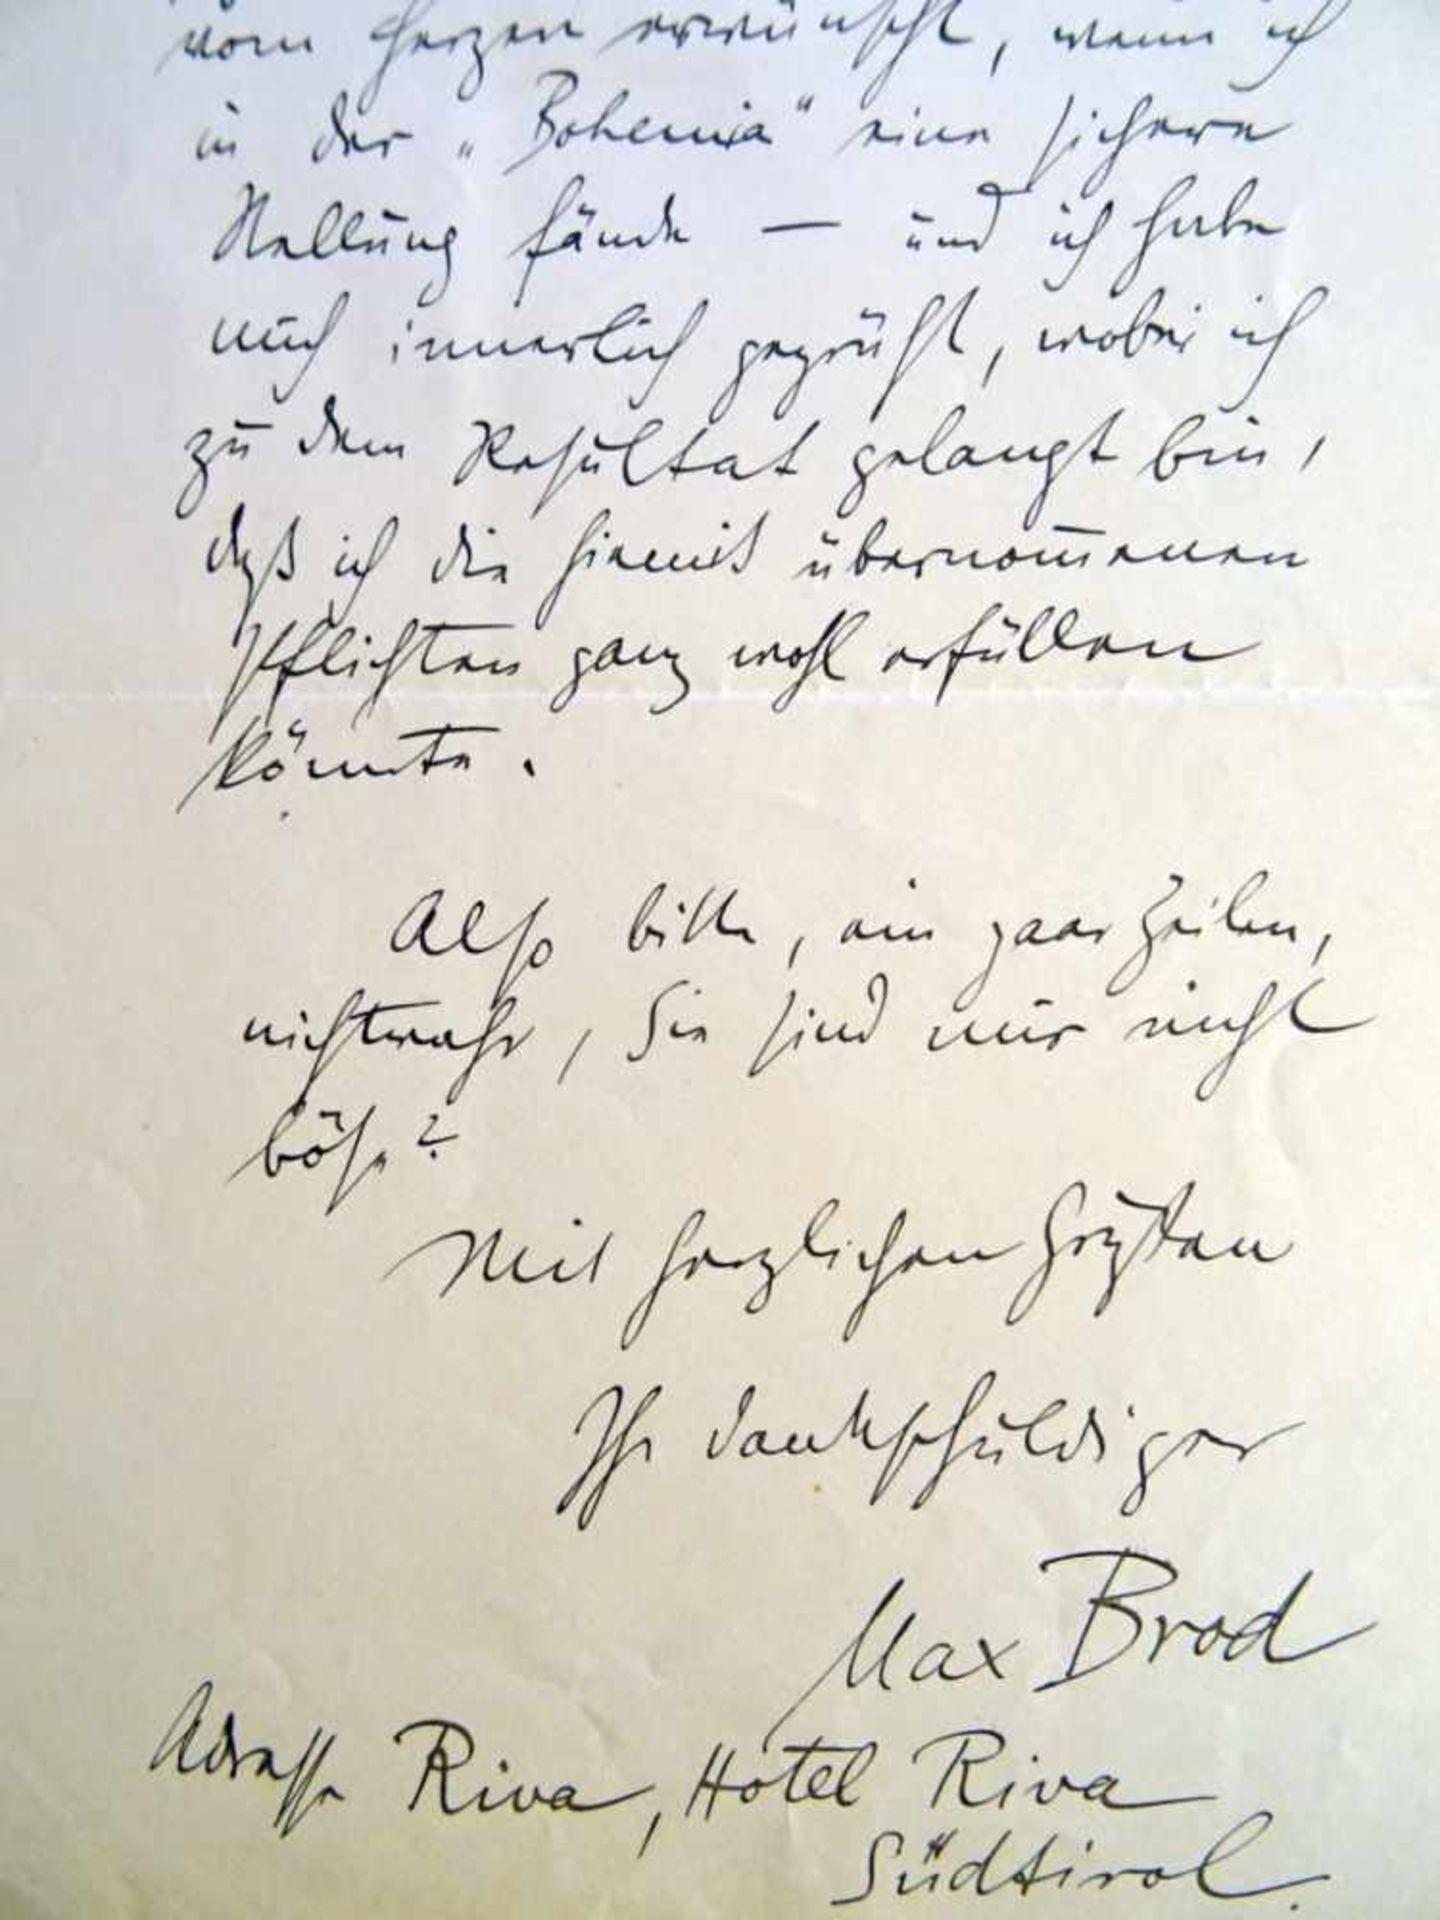 vom Herzen erwünscht, wenn ich
in der „Bohemia“ eine sichere
Stellung fände — und ich habe
mich innerlich geprüft, wobei ich
zu dem Resultat gelangt bin,
daß ich die hiemit übernommenen
Pflichten ganz wohl erfüllen
könnte.
Also bitte, ein paar Zeilen,
nichtwahr, Sie sind mir nicht
böse?
Mit herzlichen Grüßen
Ihr dankschuldiger
Max Brod
Adresse Riva, Hotel Riva
Südtirol.